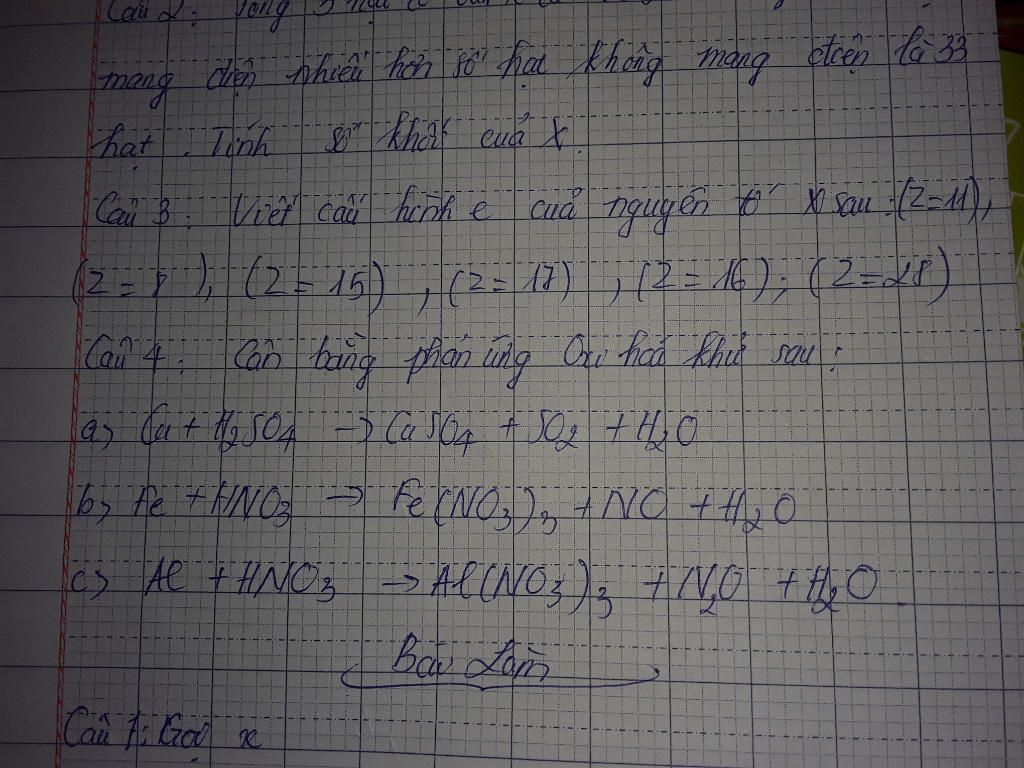 Câu 2: Tổng 3 hạt cơ bản
mang điện nhiều hơn số hạt không mang điện là 33
hạt. Tính số khối của X.
Câu 3: Viết cấu hình e của nguyên tố X sau: (Z=11),
(Z=8), (Z=15), (Z=17), (Z=16); (Z=28)
Câu 4: Cân bằng phản ứng Oxi hoá khử sau:
a) Cu + H₂SO₄ → CuSO₄ + SO₂ + H₂O
b) Fe + HNO₃ → Fe(NO₃)₃ + NO + H₂O
c) Al + HNO₃ → Al(NO₃)₃ + N₂O + H₂O
Bài Làm
Câu 1: Gọi x